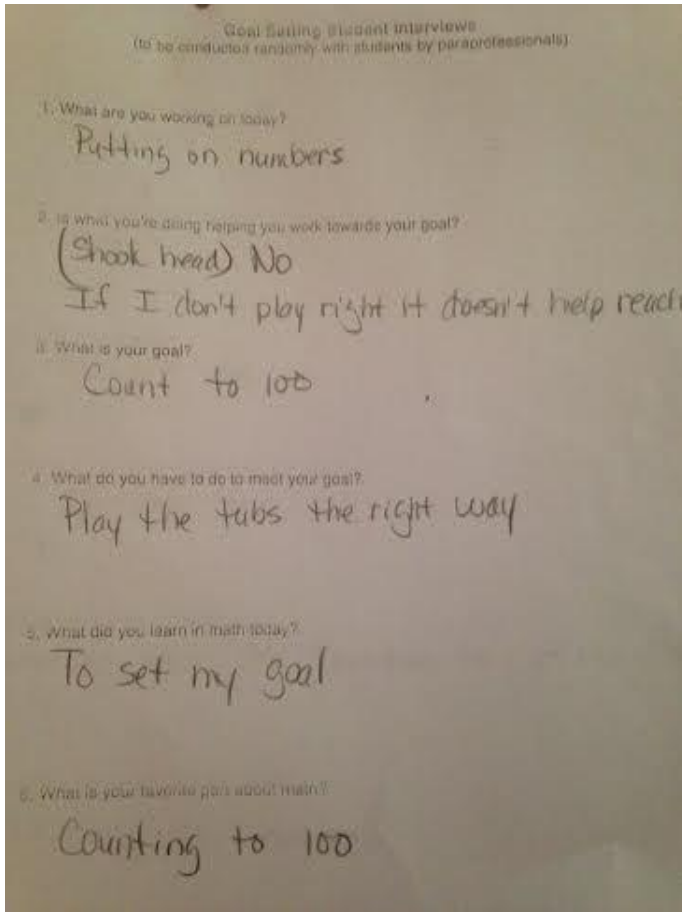 Goal Setting Student Interviews
(to be conducted randomly with students by paraprofessionals)
1. What are you working on today?
Putting on numbers
2. Is what you're doing helping you work towards your goal?
(Shook head) No
If I don't play right it doesn't help reach
3. What is your goal?
Count to 100
4. What do you have to do to meet your goal?
Play the tubs the right way
5. What did you learn in math today?
To set my goal
6. What is your favorite part about math?
Counting to 100